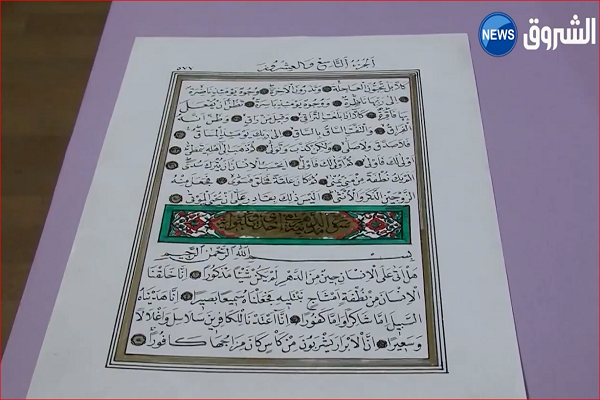 الشروق NEWS
الجزء التاسع والعشرون
٥٧٧
كلا بل تحبون العاجلة وتذرون الاخرة وجوه يومئذ ناضرة
الى ربها ناظرة ووجوه يومئذ باسرة تظن ان يفعل
بها فاقرة كلا اذا بلغت التراقي وقيل من راق وظن انه
الفراق والتفت الساق بالساق الى ربك يومئذ المساق
فلا صدق ولا صلى ولكن كذب وتولى ثم ذهب الى اهله يتمطى
اولى لك فاولى ثم اولى لك فاولى ايحسب الانسان ان يترك سدى
الم يك نطفة من مني يمنى ثم كان علقة فخلق فسوى فجعل منه
الزوجين الذكر والانثى اليس ذلك بقادر على ان يحيي الموتى
بسم الله الرحمن الرحيم
هل اتى على الانسان حين من الدهر لم يكن شيئا مذكورا انا خلقنا
الانسان من نطفة امشاج نبتليه فجعلناه سميعا بصيرا انا هديناه
السبيل اما شاكرا واما كفورا انا اعتدنا للكافرين سلاسل واغلالا
وسعيرا ان الابرار يشربون من كاس كان مزاجها كافورا